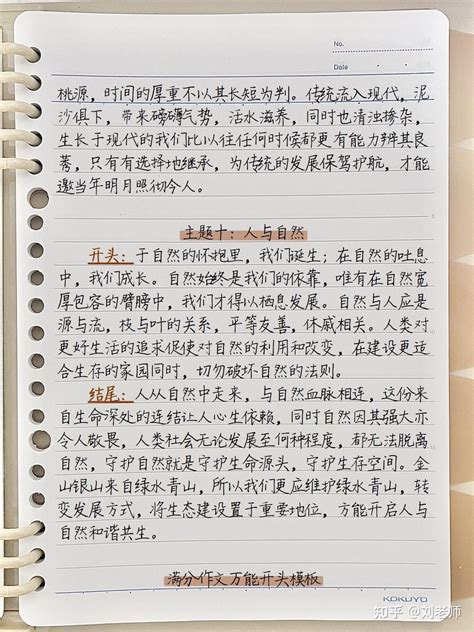 No.
Date
桃源，时间的厚重不以其长短为判。传统流入现代，泥
沙俱下，带来磅礴气势，活水滋养，同时也清浊掺杂，
生长于现代的我们比以往任何时候都更有能力辨其良
莠，只有有选择地继承，为传统的发展保驾护航，才能
邀当年明月照彻今人。
主题十：人与自然
开头：于自然的怀抱里，我们诞生；在自然的吐息
中，我们成长。自然始终是我们的依靠，唯有在自然宽
厚包容的臂膀中，我们才得以栖息发展。自然与人应是
源与流，枝与叶的关系，平等友善，休戚相关。人类对
更好生活的追求促使对自然的利用和改变，在建设更适
合生存的家园同时，切勿破坏自然的法则。
结尾：人从自然中走来，与自然血脉相连，这份来
自生命深处的连结让人心生依赖，同时自然因其强大亦
令人敬畏，人类社会无论发展至何种程度，都无法脱离
自然，守护自然就是守护生命源头，守护生存空间。金
山银山来自绿水青山，所以我们更应维护绿水青山，转
变发展方式，将生态建设置于重要地位，方能开启人与
自然和谐共生。
满分作文万能开头模板
KOKUYO
知乎 @刘老师